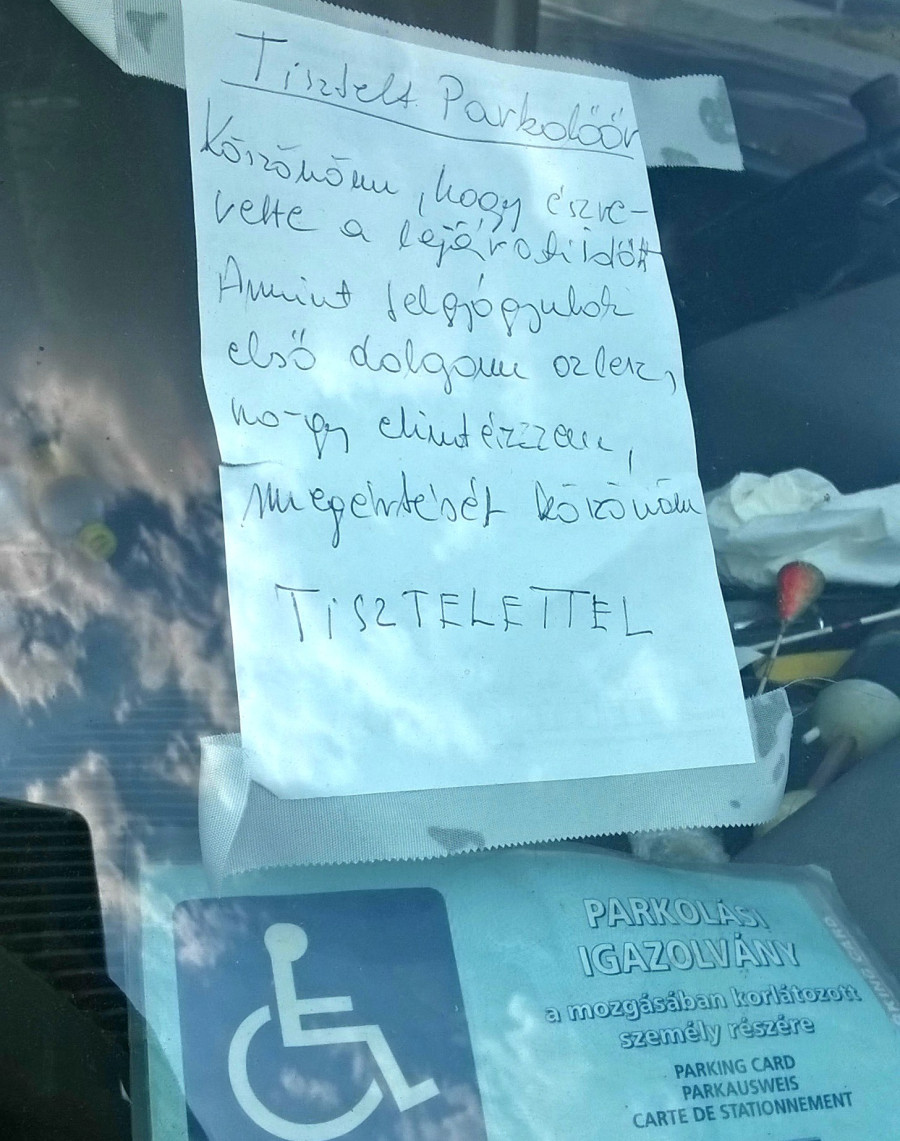 Tisztelt Parkolőőr
Köszönöm, hogy észre-
vette a lejárati időt
Amint felgyógyulok
első dolgom az lesz,
ho-gy elintézzem,
megértését köszönöm
TISZTELETTEL
PARKOLÁSI
IGAZOLVÁNY
a mozgásában korlátozott
személy részére
PARKING CARD
PARKAUSWEIS
CARTE DE STATIONNEMENT